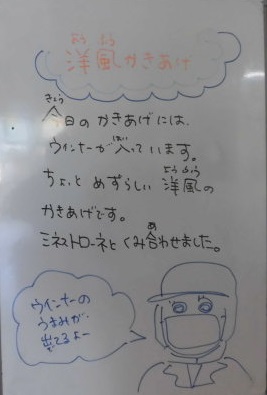 洋風かきあげ
今日のかきあげには、
ウインナーが入っています。
ちょっとめずらしい洋風の
かきあげです。
ミネストローネとくみ合わせました。
ウインナーの
うまみが
出てるよー